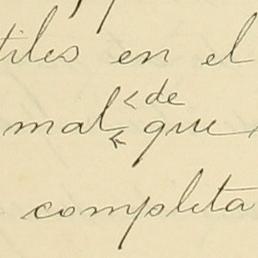 tiles en el
mal de que
completa